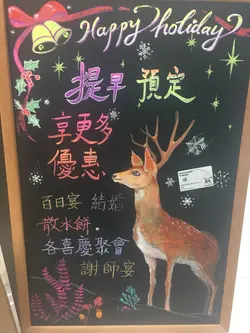 Happy holiday
提早 預定
享更多
優惠
百日宴 結婚
散水餅
各喜慶聚會
謝師宴